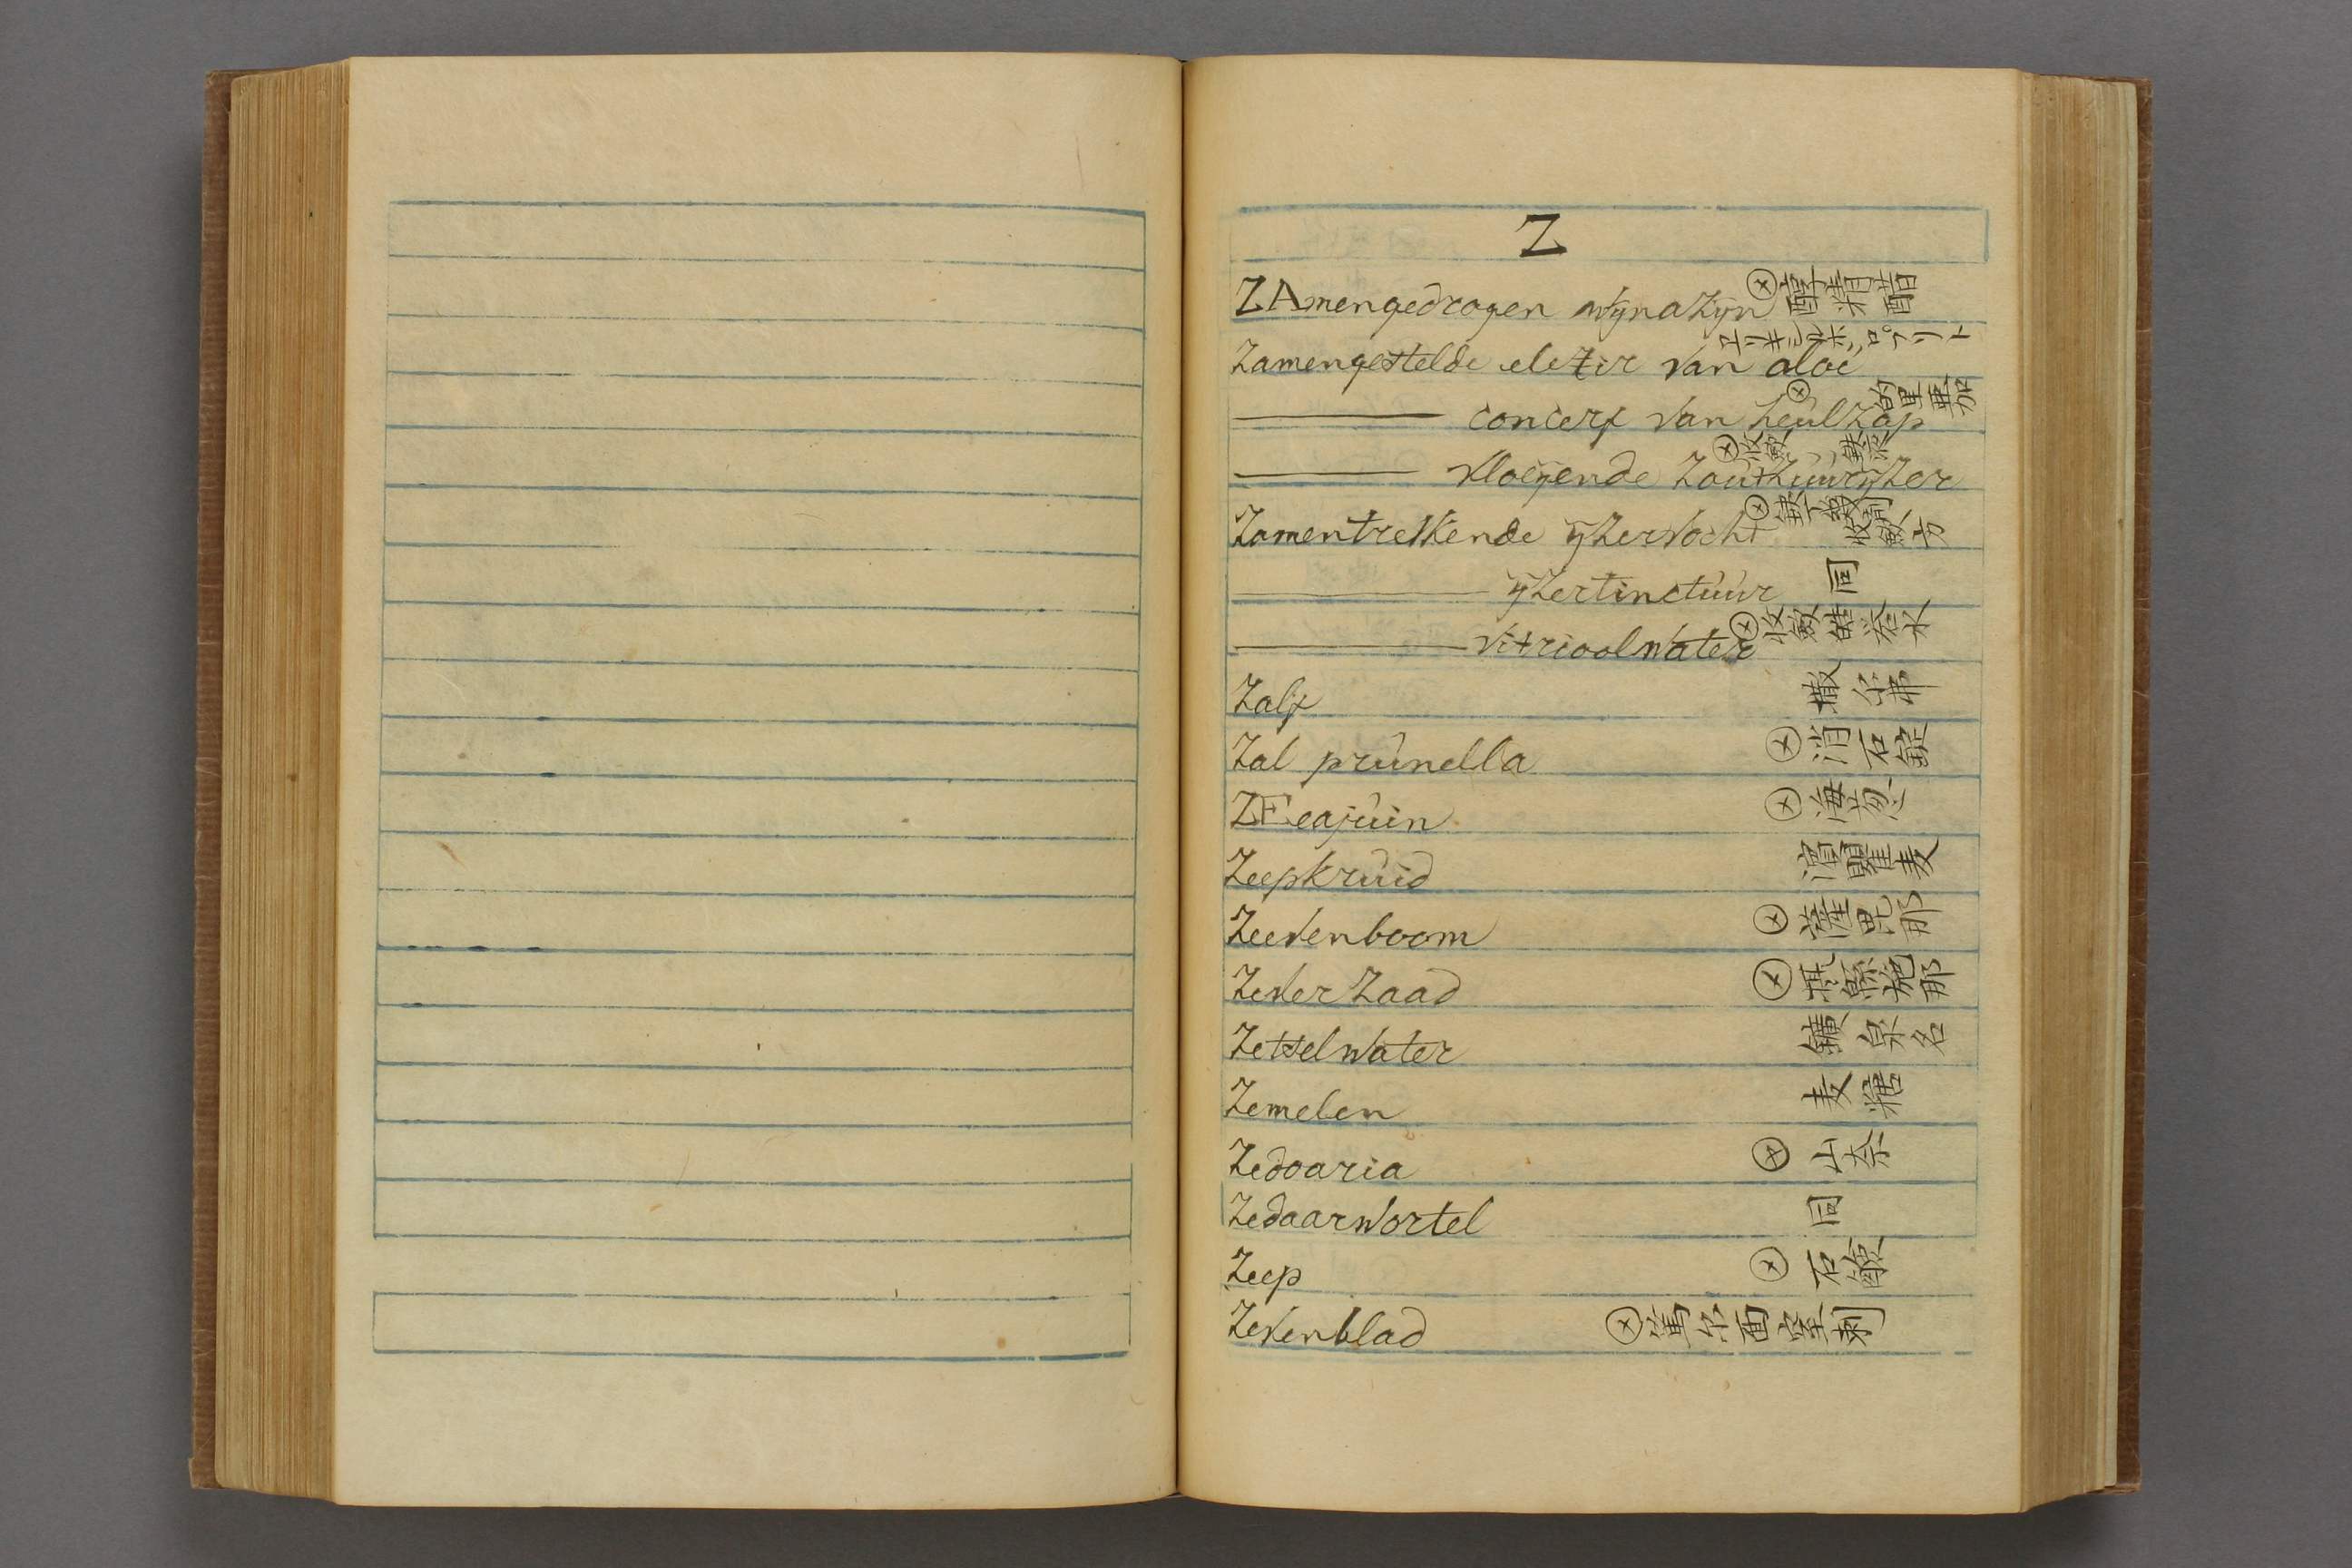 Z
ZAmengedrogen wynazyn ⊗醇精醋
Zamengestelde elezir van aloë エリキシルポロプリト
——— concerf van heulzap ⊗的里亜加
——— vloeijende zoutzuurijzer ⊗收斂
Zamentrekkende ijzervocht ⊗鉄 收斂方
——— ijzertinctuur 同
——— vitrioolwater ⊗收斂 水
Zalf 撒尓弗
Zal prunella ⊗消石錠
ZEeajuin ⊗海葱
Zeepkruid 瞿麦
Zevenboom ⊗薩毘那
Zeverzaad ⊗ 那
Zeltselwater 鑛泉名
Zemelen 麦
Zedoaria ⊗山奈
Zedaarwortel 同
Zeep ⊗石鹸
Zevenblad ⊗篤尓面窒剌